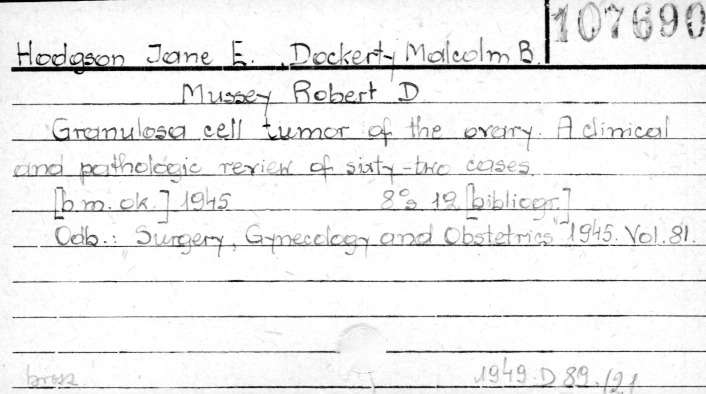 107690
Hodgson Jane E. , Dockerty Malcolm B.
Mussey Robert D.
Granulosa cell tumor of the ovary. A clinical
and pathologic review of sixty-two cases.
[b.m. ok.] 1945 8° s. 12 [bibliogr.]
Odb.: "Surgery, Gynecology and Obstetrics" 1945. Vol. 81.
brosz.
1949. D 89. /21